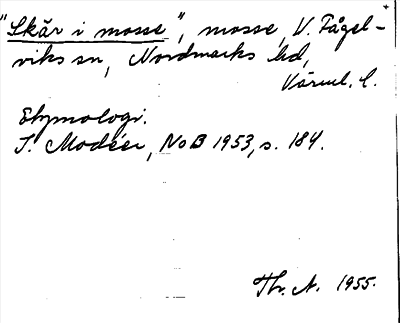 "Skär i mosse", mosse, V. Fågel-
viks sn, Nordmarks hd,
Värml. l.
Etymologi.
I. Modéer, NoB 1953, s. 184.
Thr. A. 1955.